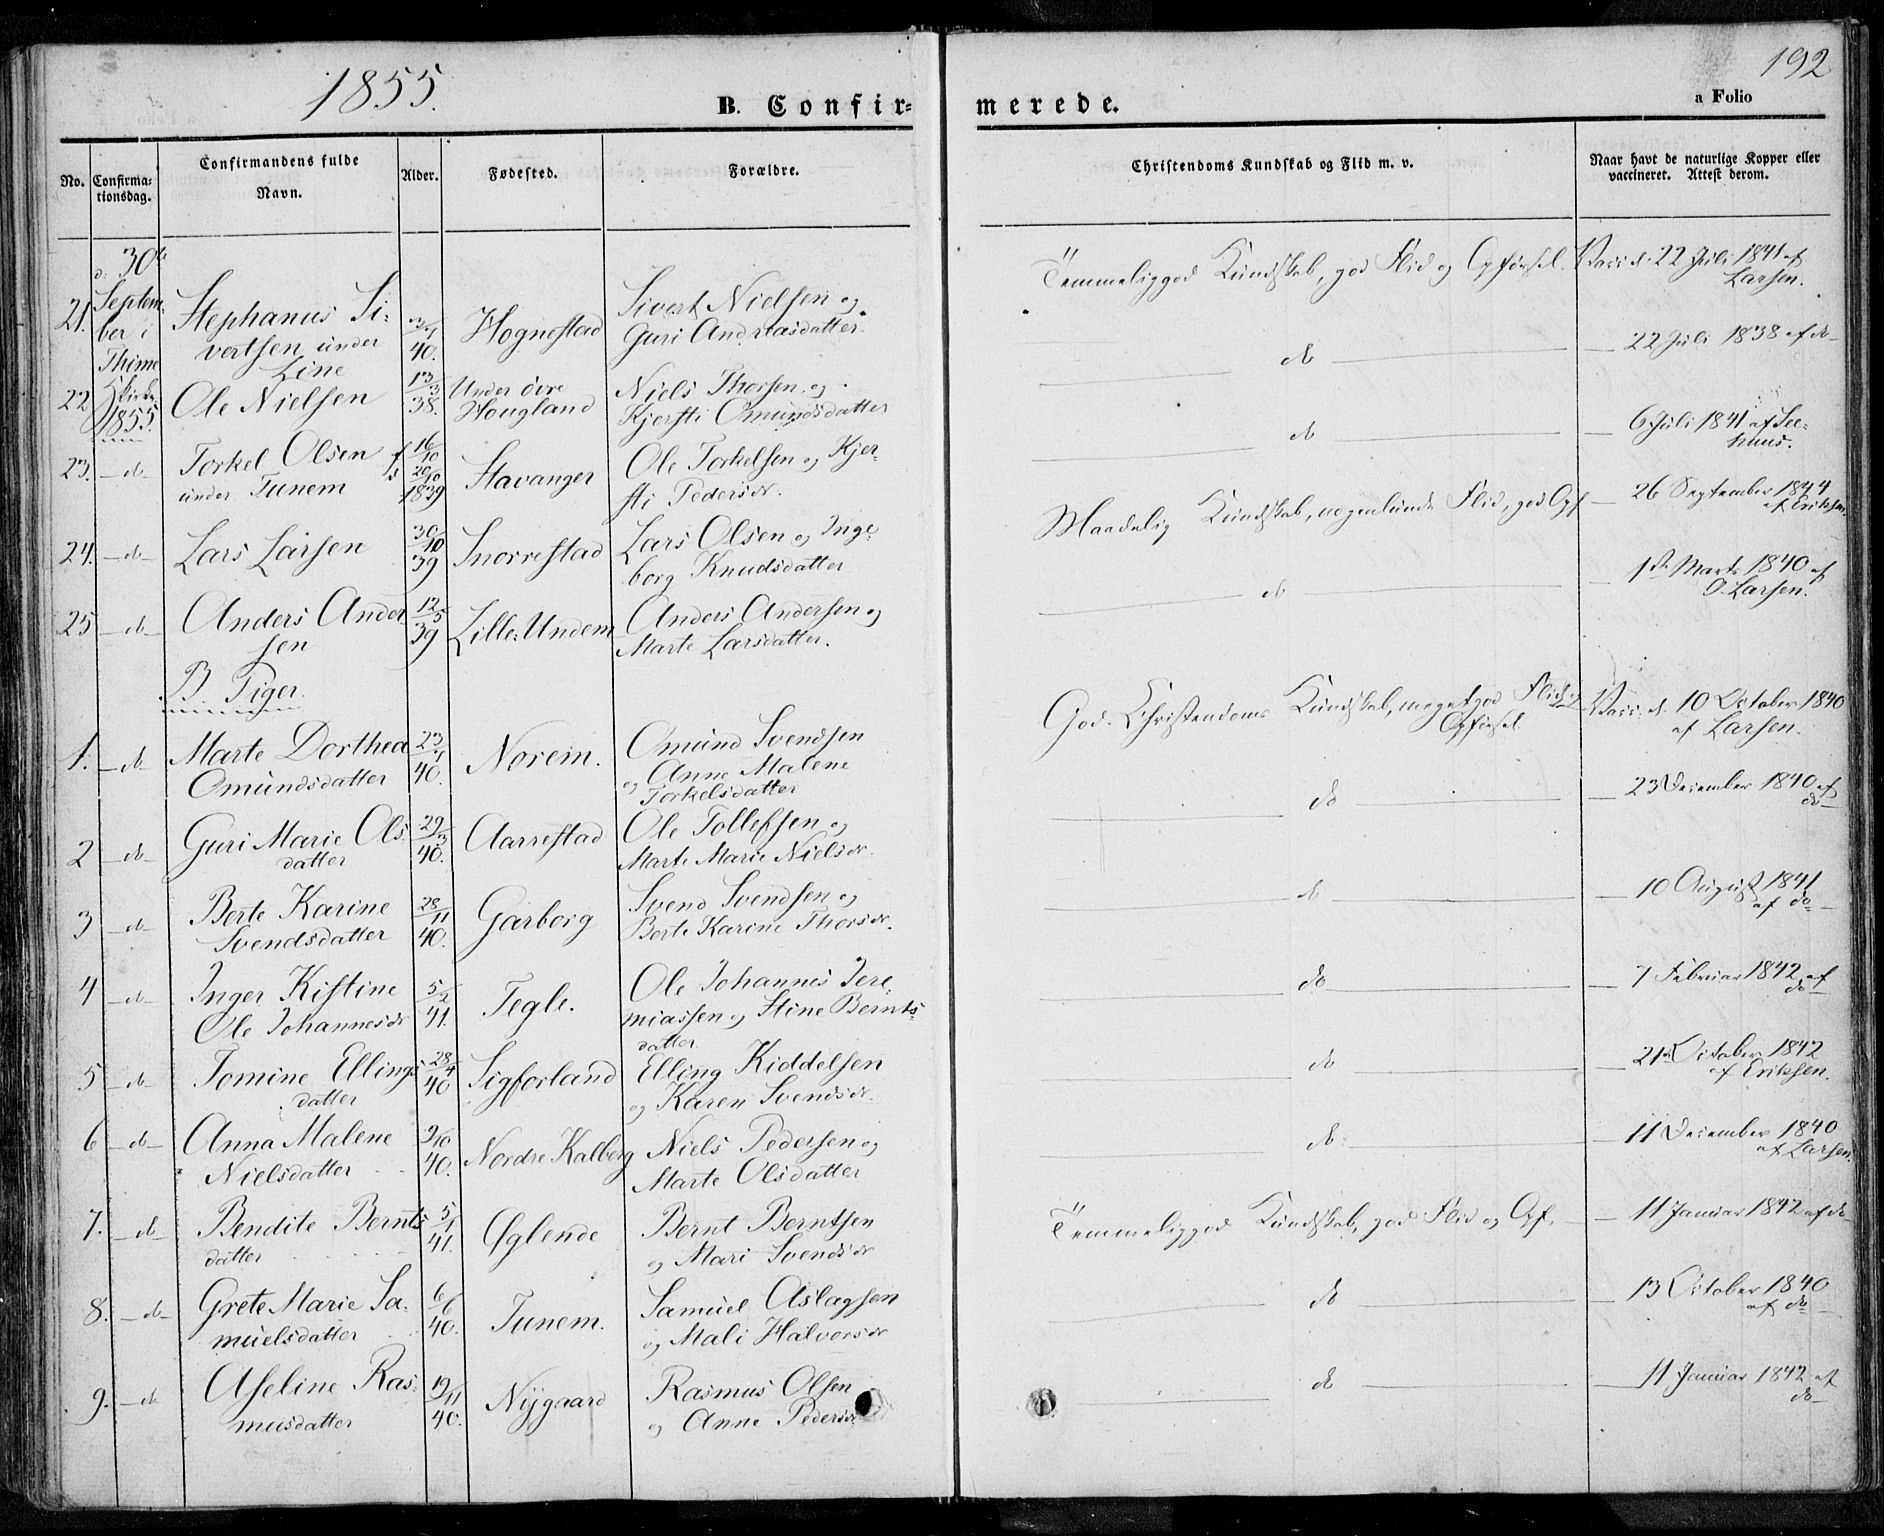 1855.
192
B. Confir=
merede.
a Folio
No.
Confirma=
tionsdag.
Confirmandens fulde
Navn.
Alder.
Fødested.
Forældre.
Christendoms Kundskab og Flid m. v.
Naar havt de naturlige Kopper eller
vaccineret. Attest derom.
d: 30te
Septem-
ber i
Thime
Kirke
1855.
21. Stephanus Si-
vertsen under
Line
3/1
40.
Hognestad
Sivert Nielsen og
Guri Andreasdatter.
Temmeliggod Kundskab, god Flid og Opførsel.
Vacc: d. 22 Juli 1841 af
Larsen.
22 Ole Nielsen
13/3
38.
Under øvre
Hougland
Niels Thorsen og
Kjersti Omundsdatter
do
22 Juli 1838 af do
23. do Torkel Olsen
under Tunem
f 16/10
d 20/10
1839
Stavanger
Ole Torkelsen og Kjer-
sti Pedersdr.
do
6 Juli 1841 af See-
huus.
24. do Lars Larsen
30/10
39
Snorrestad
Lars Olsen og Inge-
borg Knudsdatter
Maadelig Kundskab, nogenlunde Flid, god Opf
26 September 1844
af Eriksen
25 do Anders Ander
sen
12/5
39
Lille-Undem
Anders Andersen og
Marte Larsdatter.
do
1ste Marts 1840 af
O. Larsen.
B Piger.
1. do Marte Dorthea
Omundsdatter
23/1
40.
Norem.
Omund Svendsen
og Anne Malene
Torkelsdatter
God Christendoms Kundskab, meget god Flid og
Opførsel.
Vacc: d. 10 October 1840
af Larsen.
2 do Guri Marie Ols
datter
29/3
40.
Aarrestad
Ole Tollefsen og
Marte Marie Nielsdr.
do
23 December 1840 af
do
3 do Berte Karine
Svendsdatter
28/11
40.
Garborg
Svend Svendsen og
Berte Karine Thorsdr.
do
10 August 1841
af do
4 do Inger Kistine
Ole Johannesdr
5/2
41.
Tegle.
Ole Johannes Jere
miassen og Stine Bernts-
datter
do
7 Februar 1842 af
do
5 do Tomine Ellings
datter
28/4
40
Sigforland
Elling Kiddelsen
og Karen Svendsdr.
do
21de October 1842
af Eriksen.
6 do Anna Malene
Nielsdatter
9/10
40.
Nordre Kalberg
Niels Pedersen og
Marte Olsdatter
do
11 December 1840
af Larsen.
7. do Bendite Bernts
datter
5/1
41.
Øglende
Bernt Berntsen
og Mari Svendsdr
Temmeliggod Kundskab, god Flid og Opf.
11 Januar 1842 af do
8. do Grete Marie Sa-
muelsdatter
6/6
40.
Tunem.
Samuel Aslagsen
og Mali Halvorsdr
do
13 October 1840
af do
9. do Aseline Ras-
musdatter
19/11
40.
Nygaard
Rasmus Olsen
og Anne Pedersdr
do
11 Januar 1842 af
do